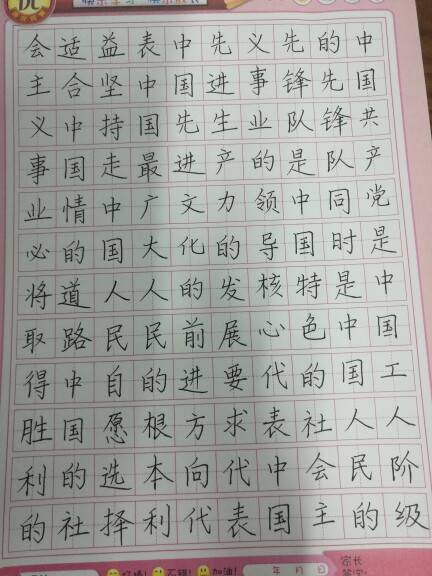 中国共产党是中国工人阶级
的先锋队同时是中国人民的
先锋队是中国特色的社会主
义事业的领导核心代表中国
先进生产力的发展要求代表
中国先进文化的前进方向代
表中国最广大人民的根本利
益坚持走中国人民自愿选择
适合中国情的道路中国的社
会主义事业必将取得胜利的
加油! 年 月 日 家长